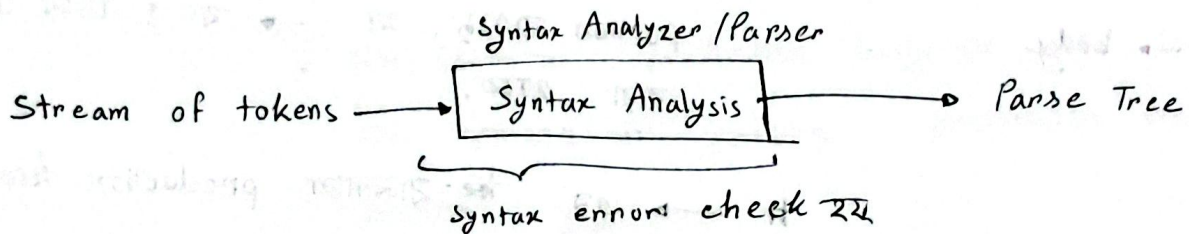 Syntax Analyzer / Parser
Stream of tokens
Syntax Analysis
Parse Tree
syntax error check হয়